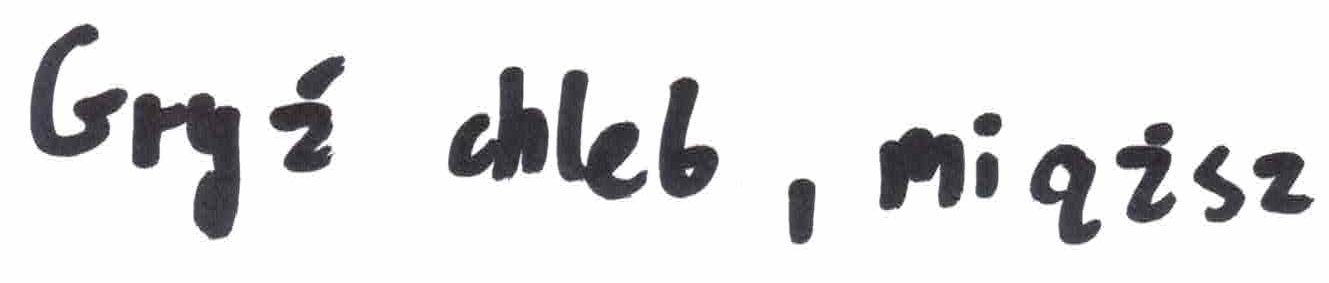 Gryź chleb , miąższ